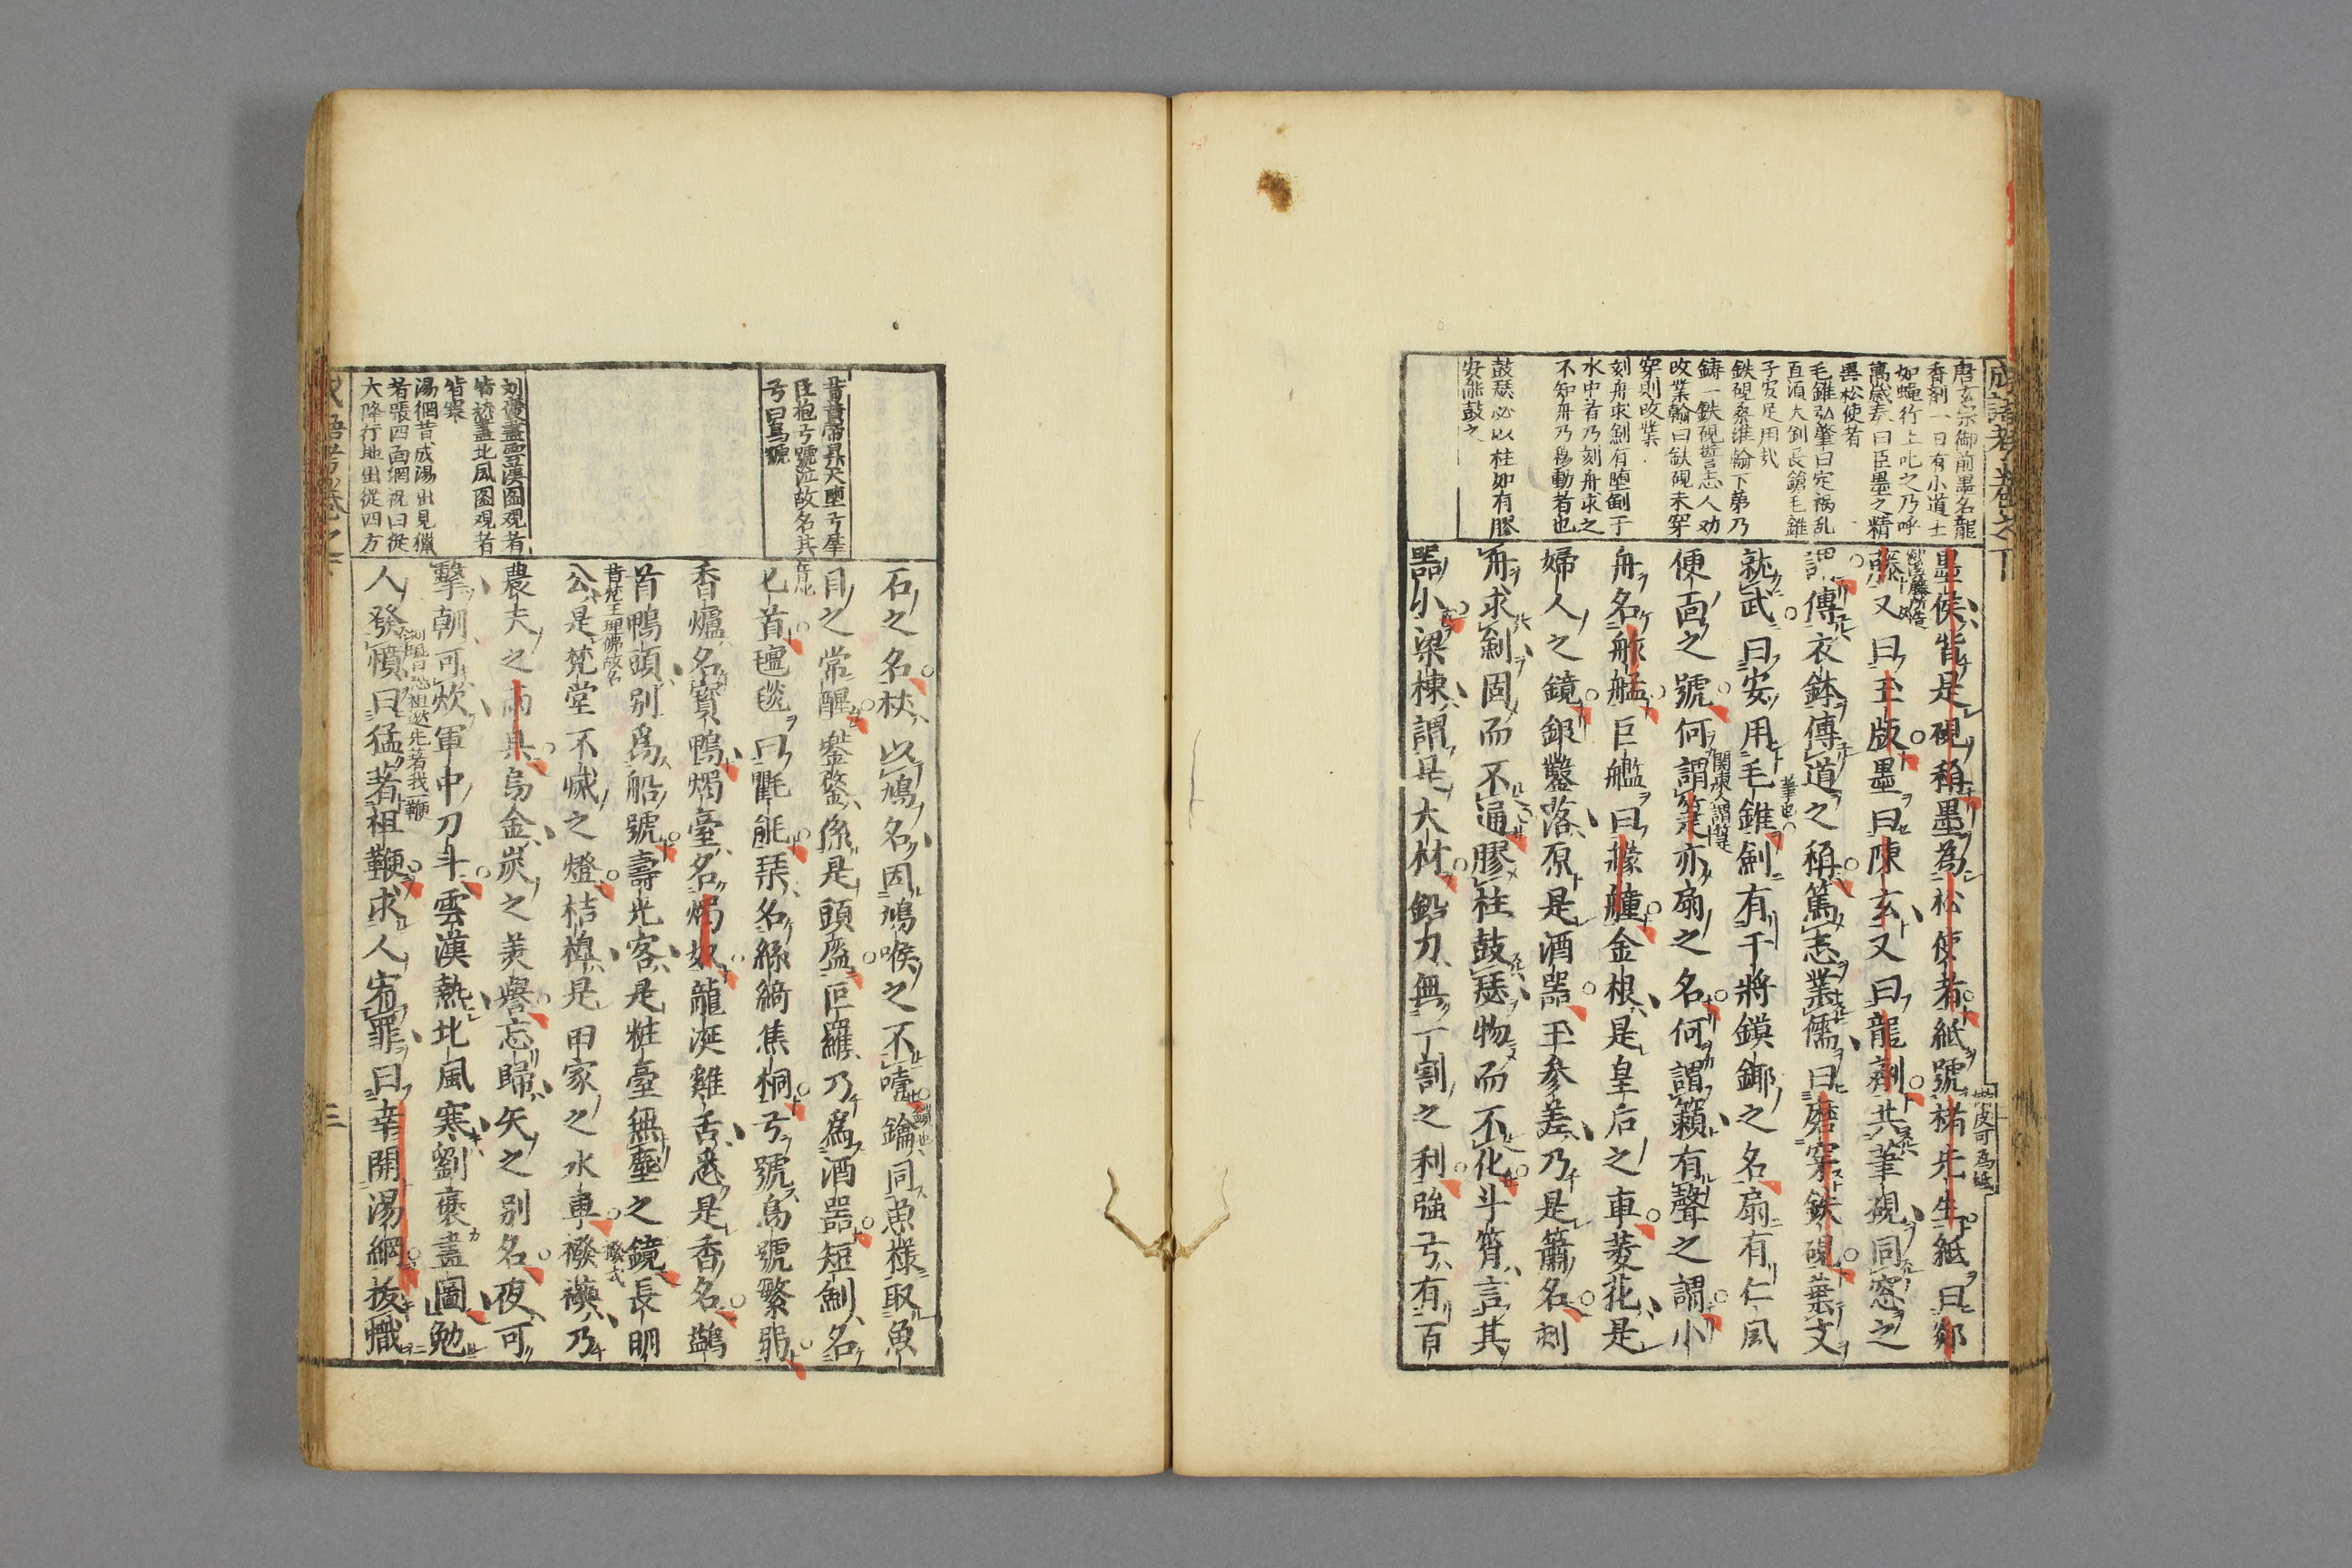 成語考卷之下
唐玄宗御前墨名龍
香劑一日有小道士
如蠅行上叱之乃呼
萬歲奏曰臣墨之精
黑松使者
毛錐弘肇曰定禍乱
直須大釗長鎗毛錐
子安足用哉
鉄硯桑維翰下第乃
鋳一鉄硯誓志人劝
改業翰曰鉄硯未穿
穿則改業
刻舟求劍有堕劍于
水中者乃刻舟求之
不知舟乃移動者也
鼓瑟必以柱如有膠
安能鼓之
墨侯皆是硯稱墨爲松使者紙號楮先生紙曰剡
藤又曰玉版墨曰陳玄又曰龍劑共筆硯同窓之
謂傳衣鉢傳道之稱篤志業儒曰磨穿鉄硯棄文
就武曰安用毛錐劍有干將鏌鎁之名扇有仁風
便面之號何謂箑亦扇之名何謂籟有聲之謂小
舟名舴艋巨艦曰艨艟金根是皇后之車菱花是
婦人之鏡銀鑿落原是酒器玉參差乃是簫名刻
舟求劍固而不通膠柱鼓瑟物而不化斗筲言其
器小梁棟謂是大材鉛刀無一割之利強弓有百
石之名杖以鳩名因鳩喉之不噎鑰同魚樣取魚
目之常醒鍪係是頭盔叵羅乃爲酒器短劍名
匕首氊毯曰氍毹琴名綠綺焦桐弓號烏號繁弱
香爐名寳鴨燭臺名燭奴龍涎雞舌悉是香名鷁
首鴨頭別爲船號壽光客是粧臺無塵之鏡長明
公是梵堂不滅之燈桔槔是田家之水車襏襫乃
農夫之雨具烏金炭之美譽忘歸矢之別名夜可
擊朝可炊軍中刀斗雲漢熱北風寒劉褒畫圖勉
人發憤曰猛著祖鞭求人宥罪曰幸開湯網拔幟
昔黃帝昇天堕弓羣
臣抱弓號泣故名其
弓曰烏號
刘褒畫雲漢圖观者
皆熱畫北風圖观者
皆寒
湯網昔成湯出見獵
者張四面網祝曰從
天降從地出從四方
三